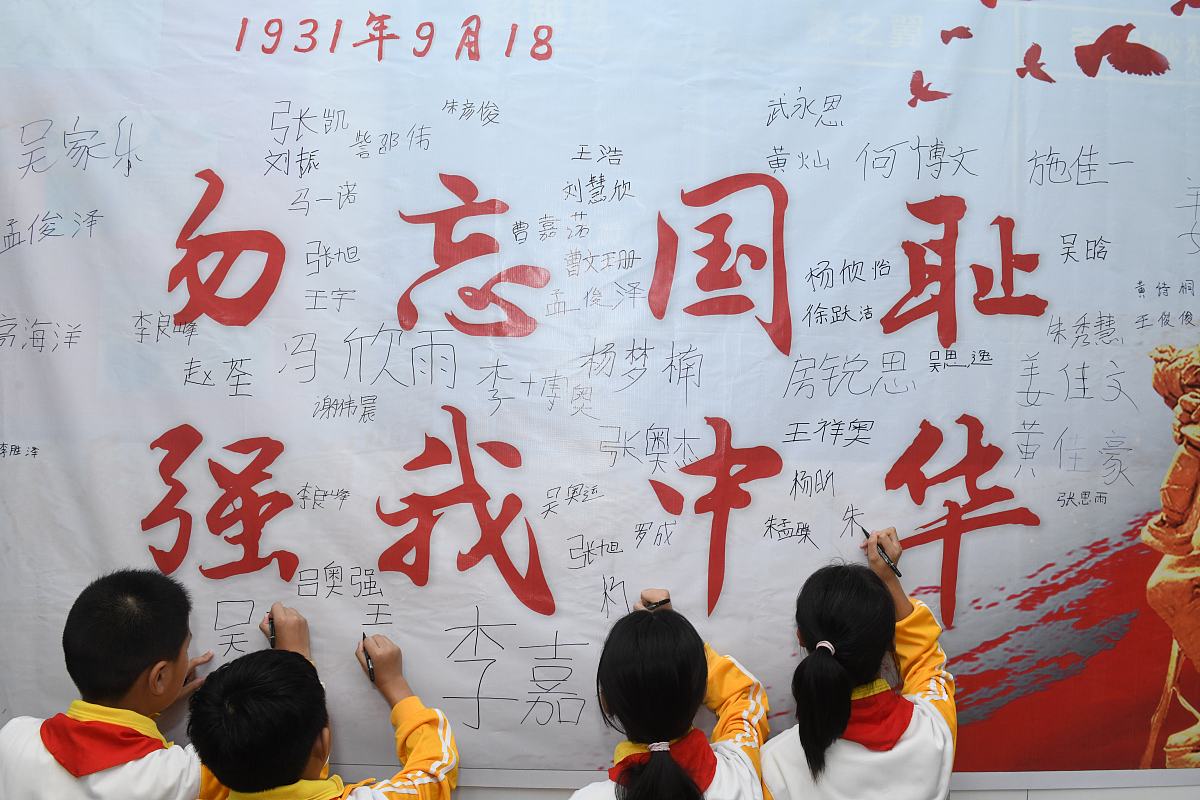 1931年9月18
吴家乐
张凯
朱彦俊
武永思
刘振
王浩
黄灿
何博文
施佳一
马一诺
刘慧欣
孟俊泽
曹嘉
张旭
曹文玉册
杨欣怡
吴晗
勿忘国耻
王宇
孟俊泽
徐跃洁
海洋
李良峰
朱秀慧
王俊俊
赵荃
冯欣雨
李博奥
杨梦楠
房锐思
吴思逸
姜佳文
谢伟晨
李胜泽
张奥杰
王祥奥
黄佳豪
强我中华
李良峰
吴奥运
杨昕
张思雨
张旭
罗成
朱孟
朱
吕奥强
吴
王
李子嘉